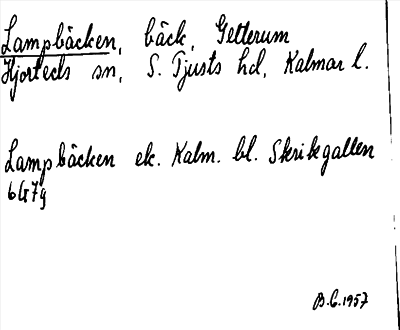 Lampbäcken, bäck, Getterum
Hjorteds sn, S. Tjusts hd, Kalmar l.
Lampbäcken ek. Kalm. bl. Skrikegallen
6G7g
B.G. 1957